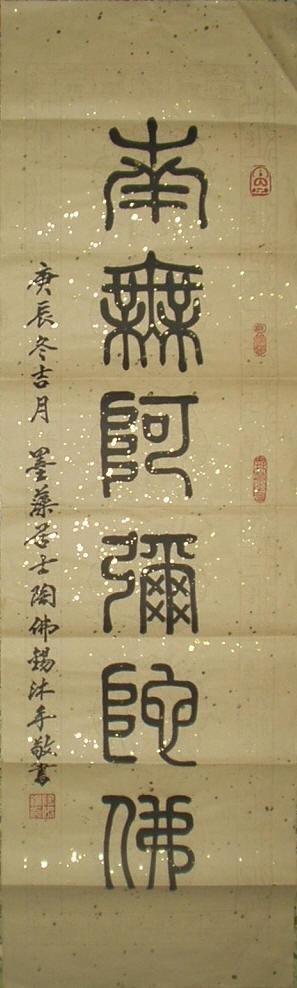 南無阿彌陀佛
庚辰冬吉月 墨葉居士陶佛錫沐手敬書